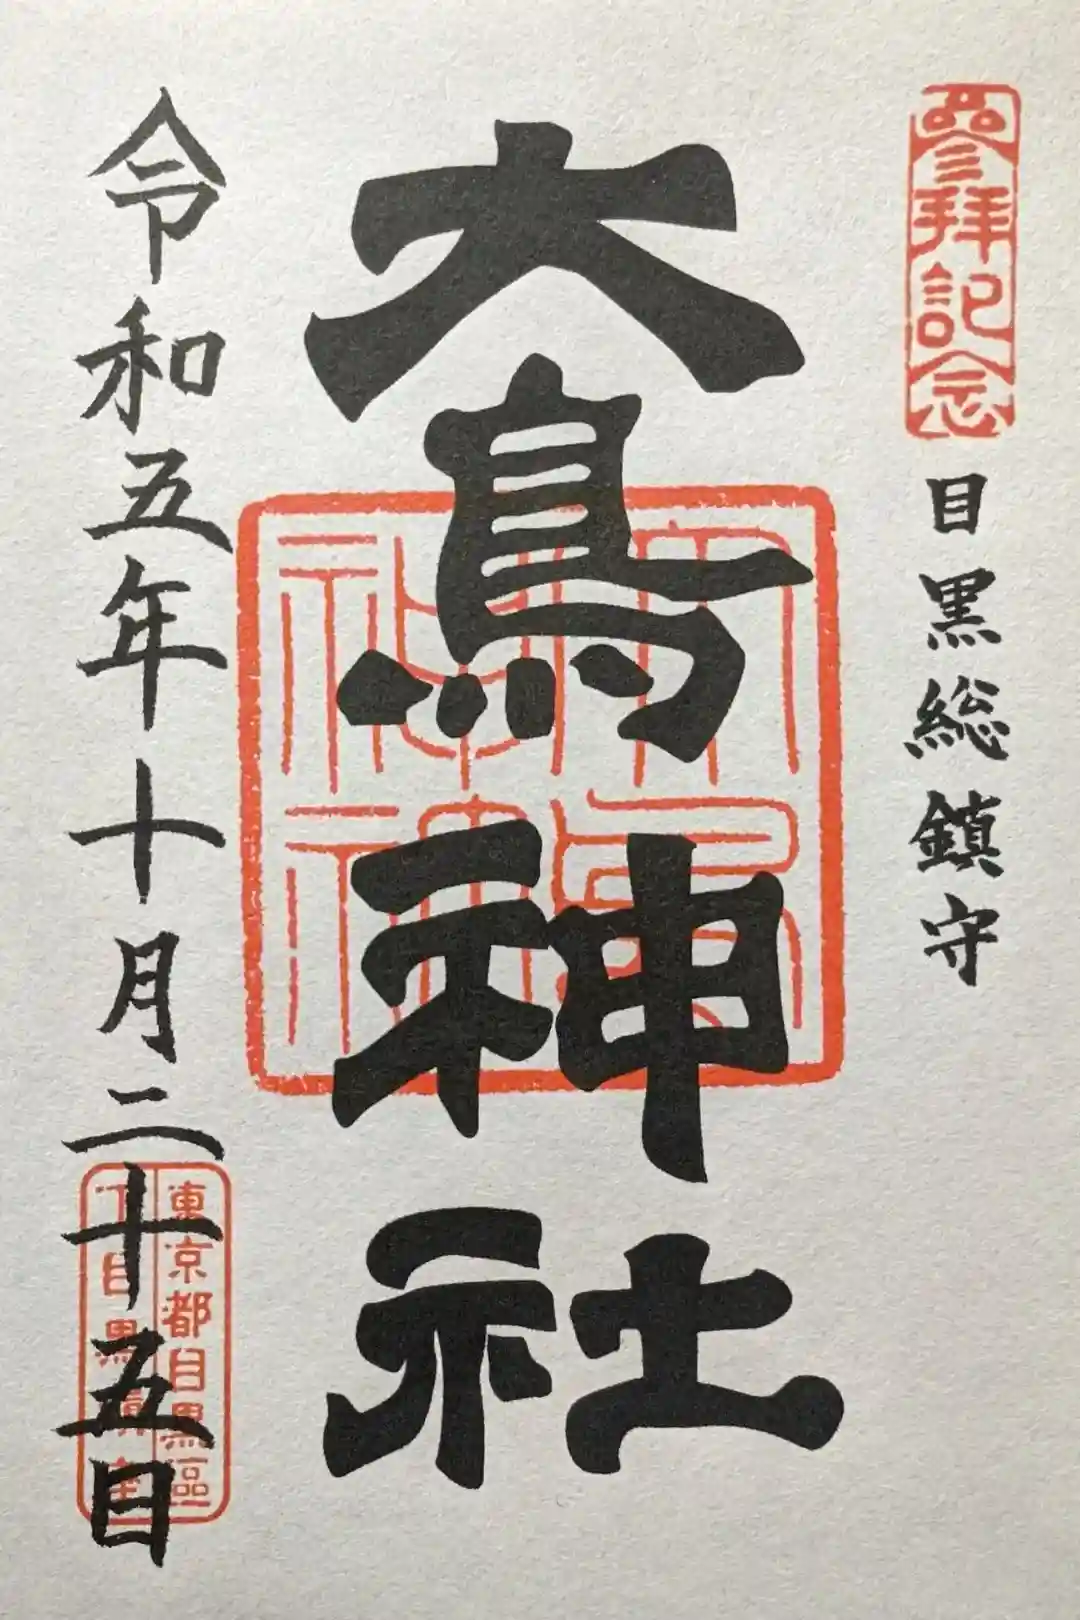 參拜記念
目黒総鎮守
大鳥神社
令和五年十月二十五日
東京都目黒區
下目黒鎮座